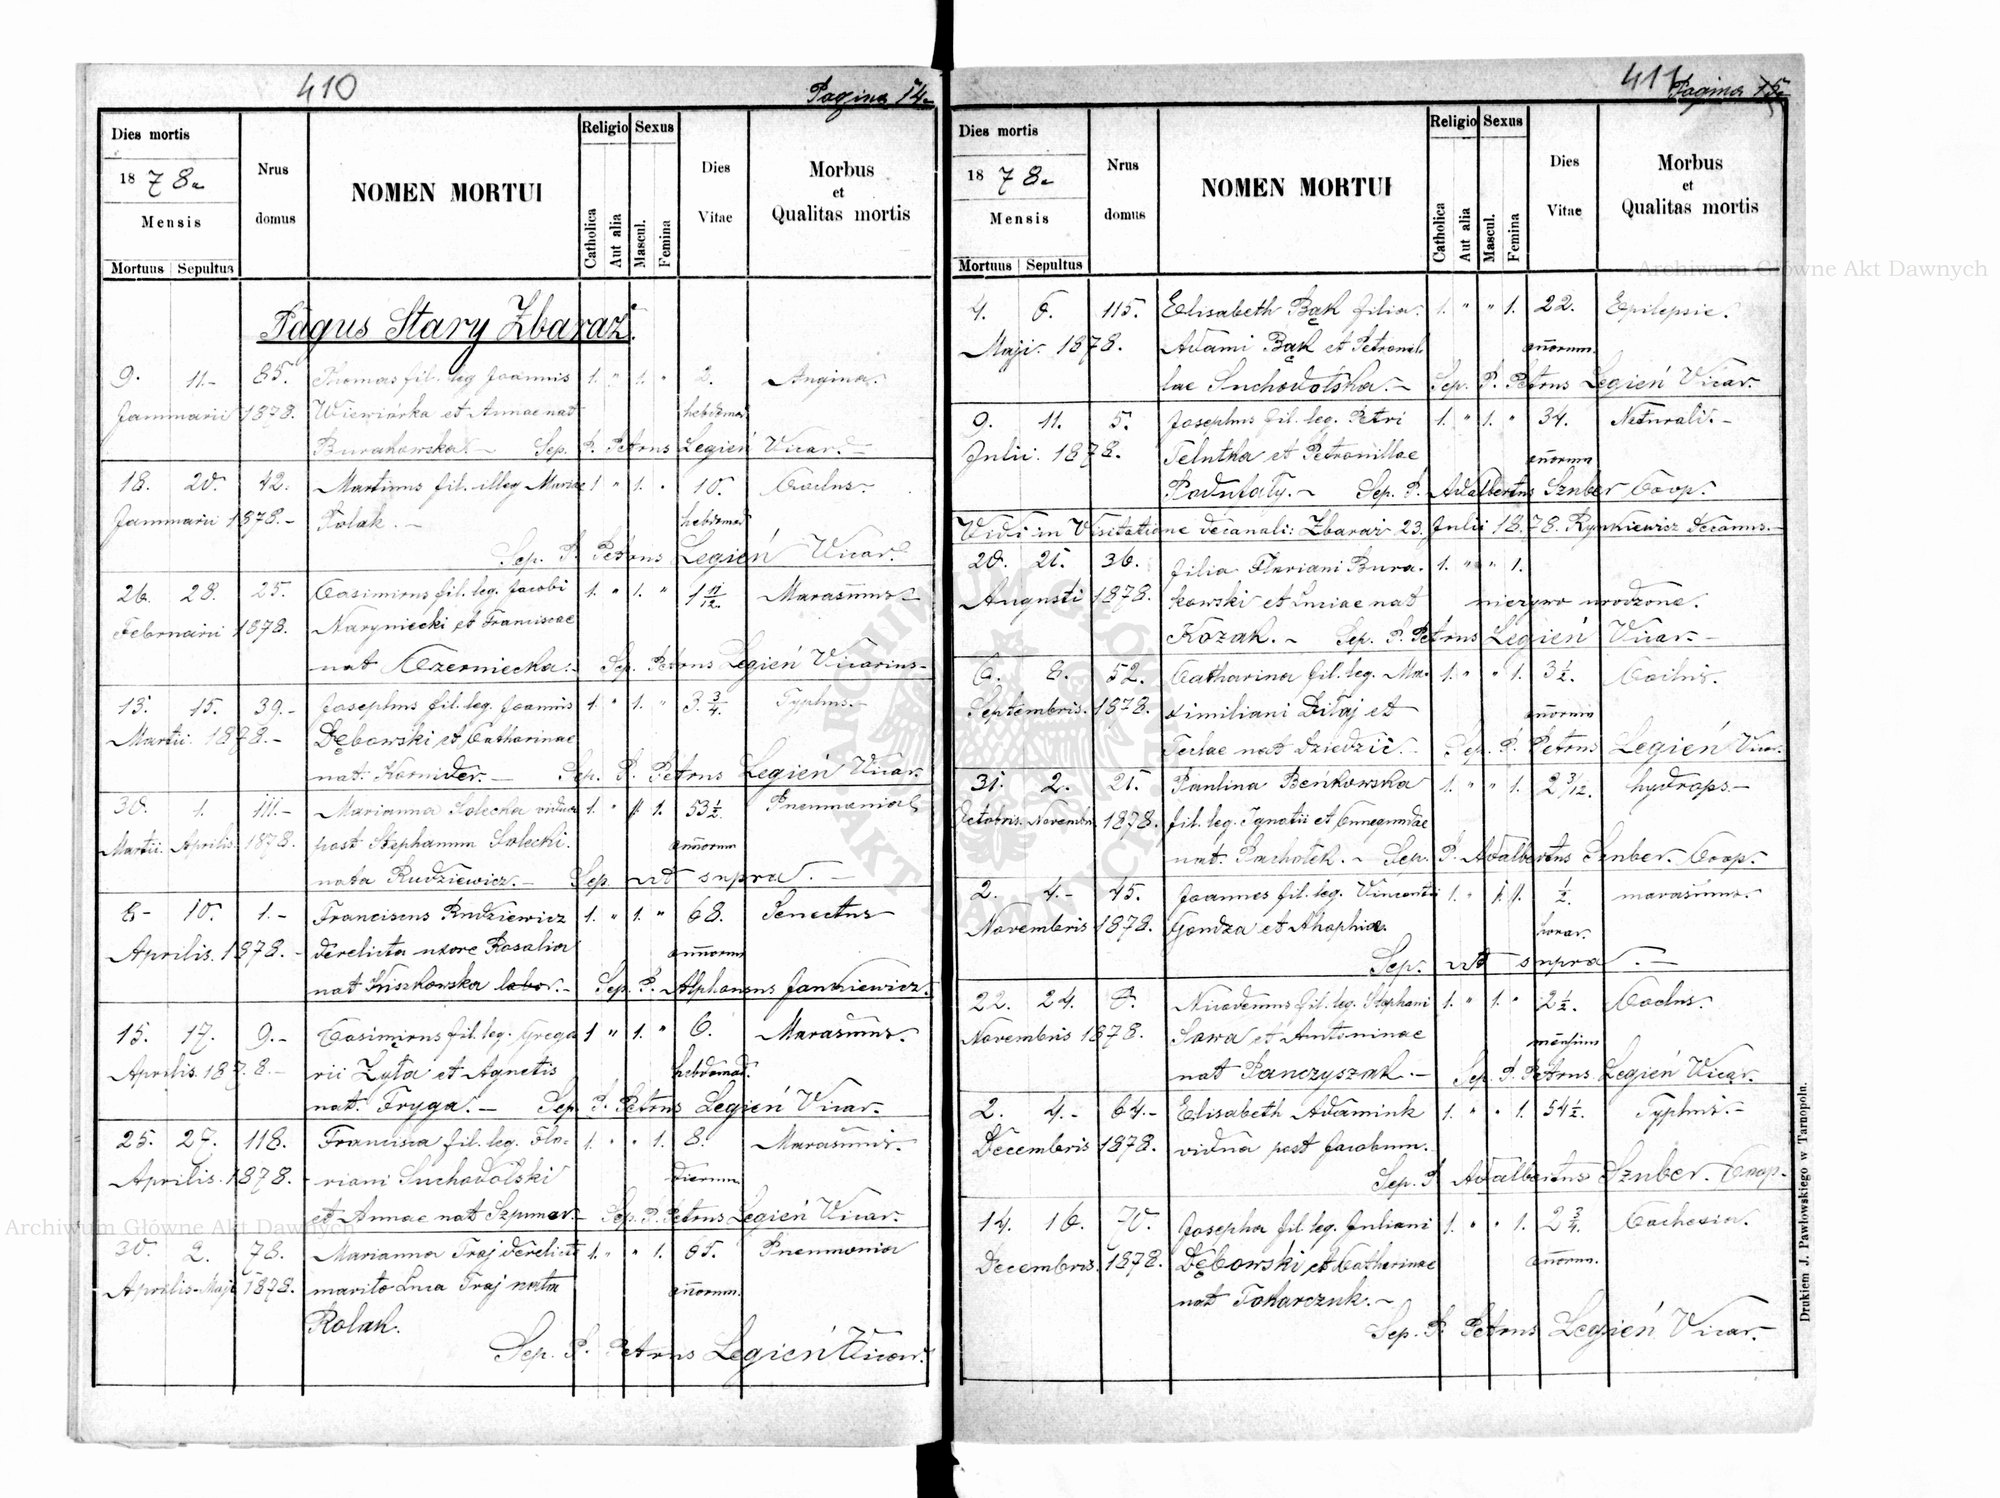 410
Pagina 14.
Dies mortis
1878.
Mensis
Mortuus Sepultus
Nrus domus
NOMEN MORTUI
Religio
Catholica
Aut alia
Sexus
Mascul.
Femina
Dies Vitae
Morbus
et
Qualitas mortis
Pagus Stary Zbaraż.
9. 11. 85. Thomas fil. leg Joannis 1. " 1. " 2. Angina.
Januarii 1878. Wiewiórka et Annae nat hebdomad
Burakowska Sep. P. Petrus Legień Vicar.
18. 20. 42. Martinus fil. illeg Mariae 1 " 1. " 10. Coclus.
Januarii 1878. Polak. hebdomad
Sep. P. Petrus Legień Vicar.
26. 28. 25. Casimirus fil. leg. Jacobi 1. " 1. " 1 11/12. Marasmus
Februarii 1878. Naryniecki et Franciscae
nat Czerniecka. Sep. Petrus Legień Vicarius
13. 15. 39. Josephus fil. leg. Joannis 1. " 1. " 3 3/4. Typhus.
Martii 1878. Dębowski et Catharinae
nat. Sep. P. Petrus Legień Vicar.
30. 1. 111. Marianna Solecka vidua 1. " 1. 53 1/2. Pneumonia
Martii. Aprilis 1878. post Stephanum Solecki. annorum
nata Rudziewicz. Sep. ut supra.
8. 10. 1. Franciscus Rudziewicz 1. " 1. " 68. Senectus
Aprilis. 1878. derelicta uxore Rosalia annorum
nat Kiszkowska labor. Sep. P. Alphonsus Jankiewicz.
15. 17. 9. Casimirus fil. leg. Grego 1 " 1. " 6. Marasmus.
Aprilis. 1878. rii Zyła et Agnetis hebdomad.
nat. Fryga. Sep P. Petrus Legień Vicar.
25. 27. 118. Francisca fil. leg. Flo- 1. " " 1. 8. Marasmus.
Aprilis. 1878. riani Suchodolski dierum
et Annae nat Sep. P. Petrus Legień Vicar.
30. 2. 78. Marianna Traj derelicto 1. " " 1. 65. Pneumonia
Aprilis-Maji 1878. marito Luca Traj nata annorum.
Polak.
Sep. P. Petrus Legień Vicar.
411
Pagina 15.
Dies mortis
1878.
Mensis
Mortuus Sepultus
Nrus domus
NOMEN MORTUI
Religio
Catholica
Aut alia
Sexus
Mascul.
Femina
Dies Vitae
Morbus
et
Qualitas mortis
4. 6. 115. Elisabeth Bąk filia 1. " " 1. 22. Epilepsie.
Maji. 1878. Adami Bąk et Petronil annorum.
lae Suchodolska. Sep. P. Petrus Legień Vicar.
9. 11. 5. Josephus fil. leg. Petri 1. " 1. " 34. Naturali.
Julii. 1878. et Petronillae annorum
Sep. P. Adalbertus Sznber Coop.
Vidi in Visitatione decanali: Zbaraż 23. Julii 1878. Rynkiewicz Decanus.
20. 21. 36. filia Floriani Bura- 1. " " 1.
Augusti 1878. kowski et Luciae nat nieżywo urodzone.
Kozak. Sep. P. Petrus Legień Vicar.
6. 8. 52. Catharina fil. leg. Ma- 1. " " 1. 3 1/2.
Septembris. 1878. ximiliani et annorum
Teclae nat Dziedzic. Sep. P. Petrus Legień Vicar.
31. 2. 21. Paulina Beńkowska 1. " " 1. 2 3/12. hydrops.
Octobris. Novembr. 1878. fil. leg. Ignatii et Cunegundae
nat. Pachołek. Sep. P. Adalbertus Sznber. Coop.
2. 4. 45. Joannes fil. leg. Vincentii 1. " 1. 1/2. marasmus.
Novembris 1878. Gondza et horar.
Sep. ut supra.
22. 24. Nicodemus fil. leg. Stephani 1. " 1. " 2 1/2. Coclus.
Novembris 1878. Sawa et Antoninae mensium
nat Panczyszak. Sep. P. Petrus Legień Vicar.
2. 4. 64. Elisabeth Adamiuk 1. " " 1. 54 1/2. Typhus.
Decembris 1878. vidua post Jacobum.
Sep. P. Adalbertus Sznber. Coop.
14. 16. 70. Josepha fil. leg. Juliani 1. " " 1. 2 3/4. Cachexia.
Decembris. 1878. Dębowski et Catharinae annorum.
nat Tokarczuk.
Sep. P. Petrus Legień Vicar.
Drukiem J. Pawłowskiego w Tarnopolu.
Archiwum Główne Akt Dawnych
Archiwum Główne Akt Dawnych
ARCHIWUM GŁÓWNE AKT DAWNYCH